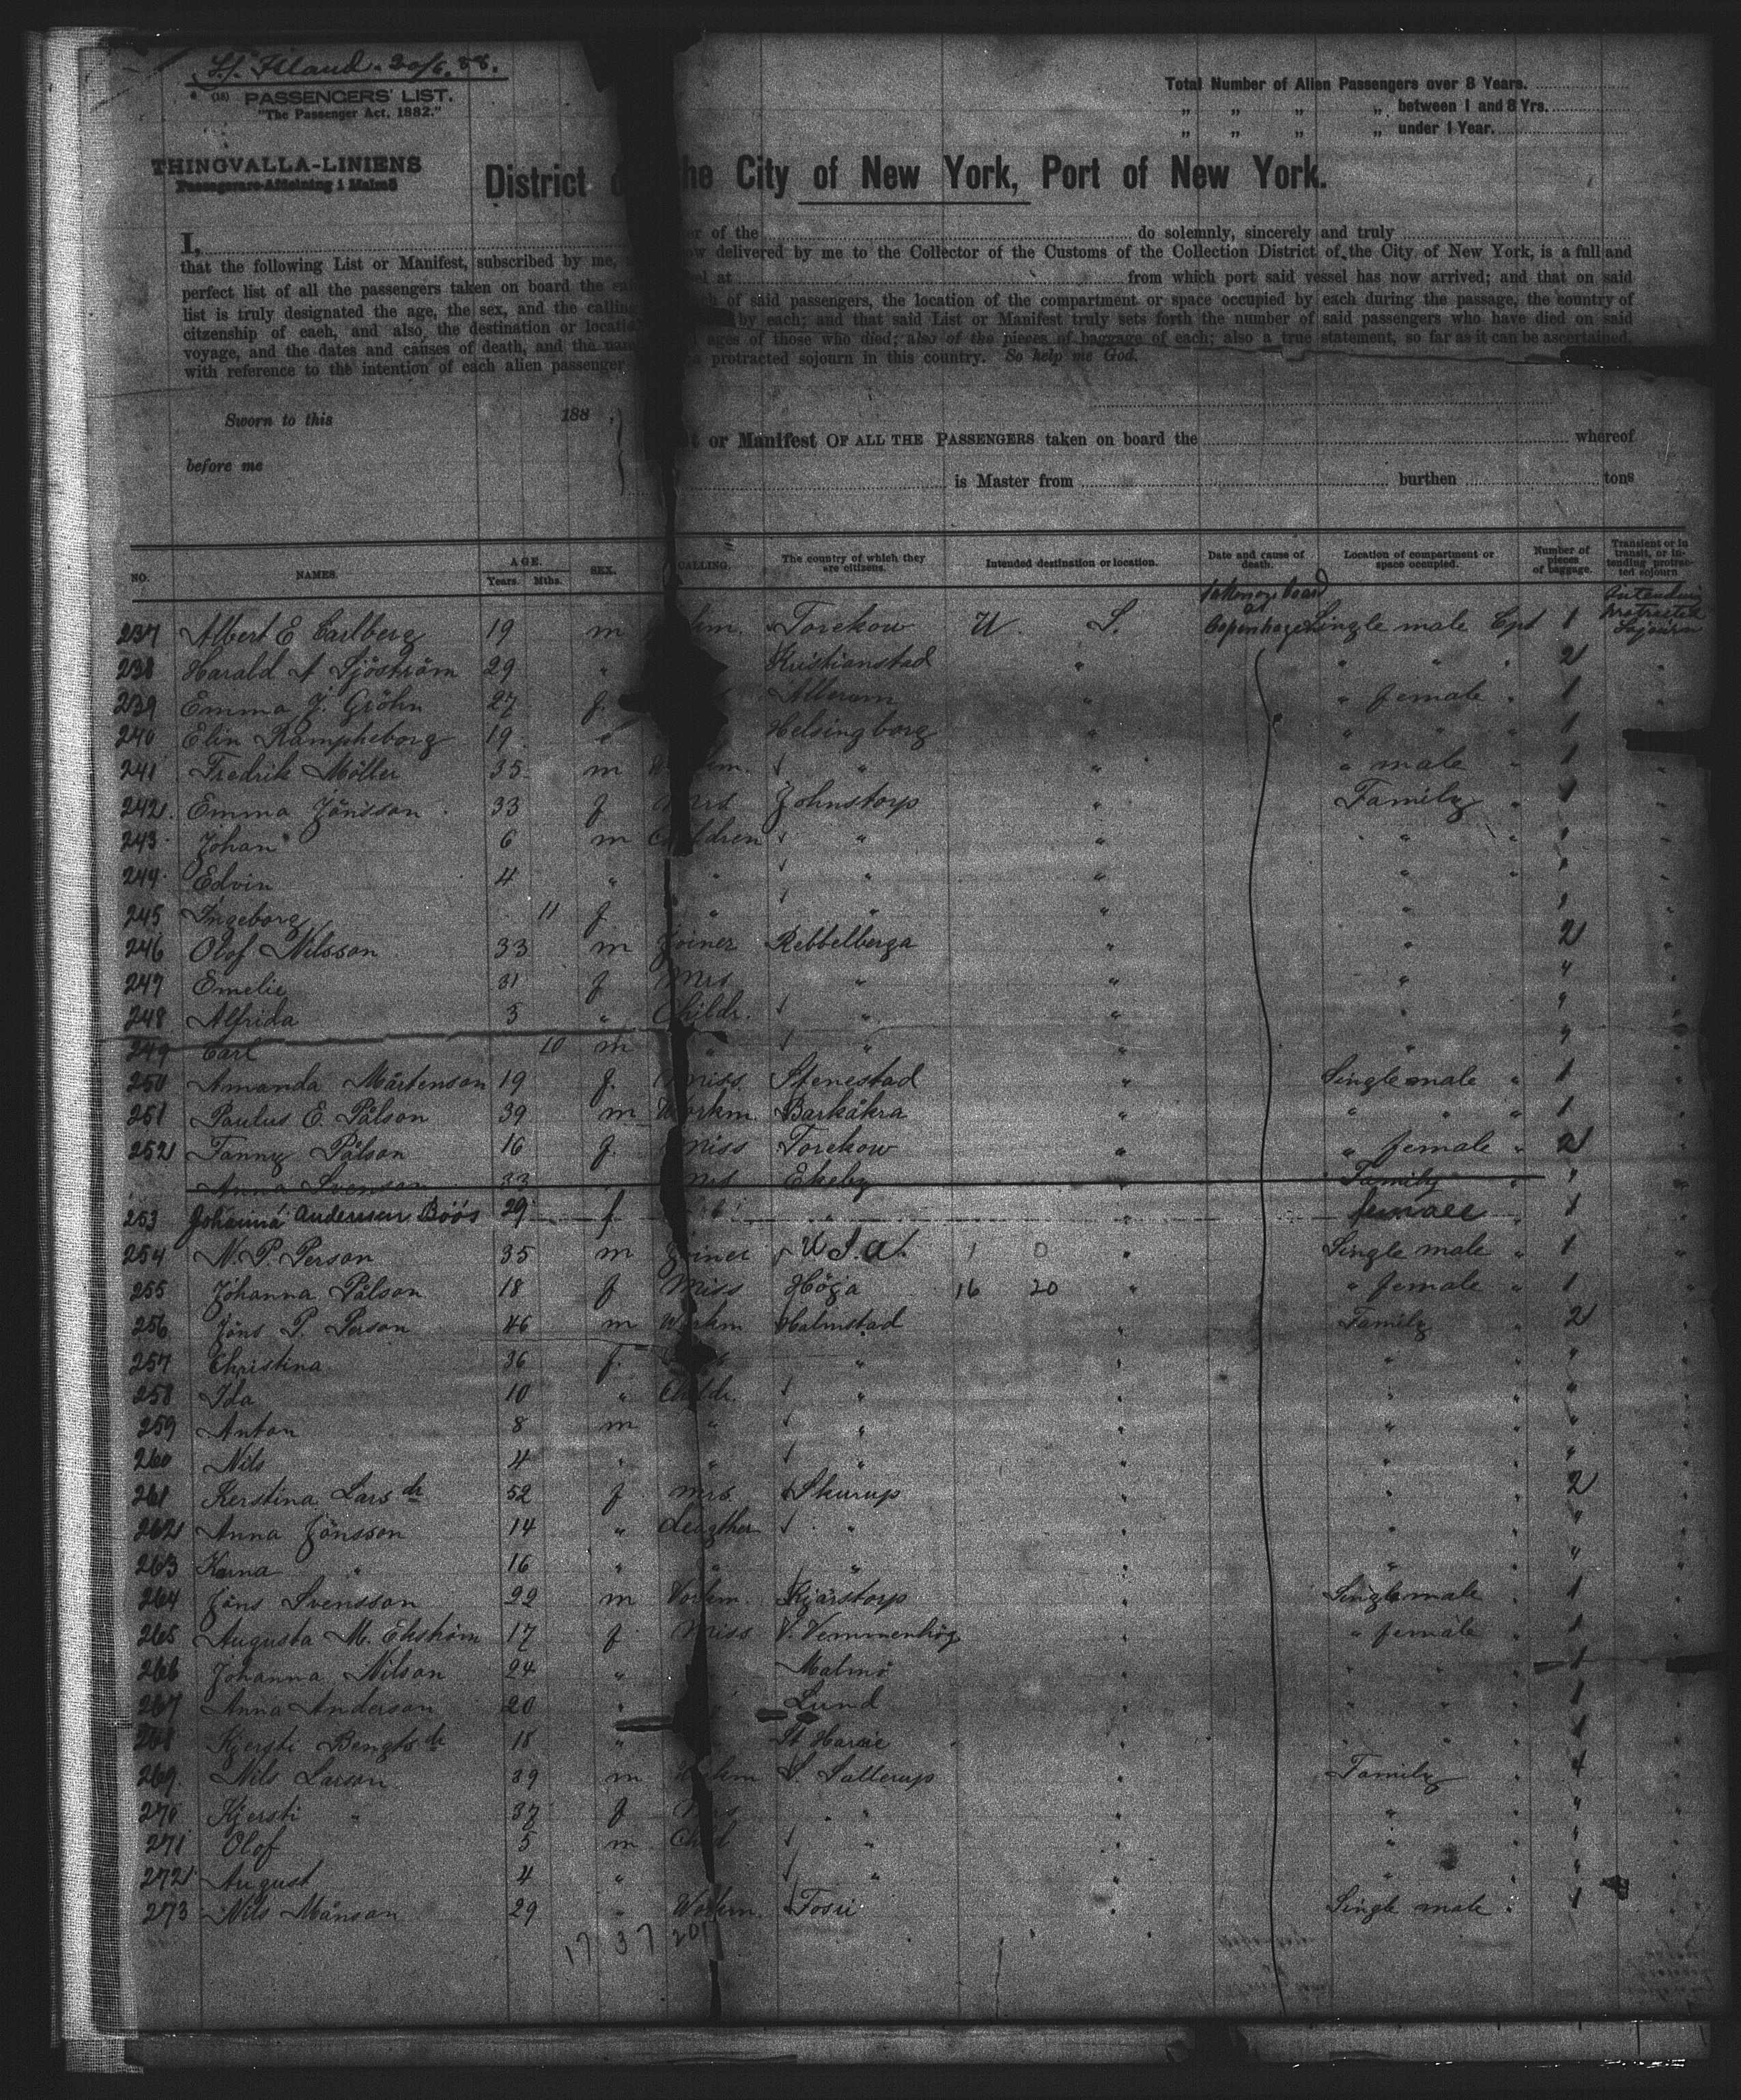 S/S. Island. 20/6. 88.
(18) PASSENGERS' LIST.
"The Passenger Act, 1882."
THINGVALLA-LINIENS
Passagerare-Afdelning i Malmö
Total Number of Alien Passengers over 8 Years.
" " " " between 1 and 8 Yrs.
" " " " under 1 Year.
District he City of New York, Port of New York.
I, of the do solemnly, sincerely and truly
that the following List or Manifest, subscribed by me, ow delivered by me to the Collector of the Customs of the Collection District of the City of New York, is a full and
perfect list of all the passengers taken on board the at from which port said vessel has now arrived; and that on said
list is truly designated the age, the sex, and the calling of said passengers, the location of the compartment or space occupied by each during the passage, the country of
citzenship of each, and also the destination or by each; and that said List or Manifest truly sets forth the number of said passengers who have died on said
voyage, and the dates and causes of death, and the ages of those who died; also of the pieces of baggage of each; also a true statement, so far as it can be ascertained,
with reference to the intention of each alien passenger protracted sojourn in this country. So help me God.
Sworn to this 188 .
before me
or Manifest OF ALL THE PASSENGERS taken on board the whereof
is Master from burthen tons
NO. NAMES. AGE. Years. Mths. SEX. CALLING. The country of which they are citizens. Intended destination or location. Date and cause of death. Location of compartment or space occupied. Number of pieces of baggage. Transient or in transit, or intending protracted sojourn
237 Albert E Carlberg 19 m Torekow U. S. taken on board at Copenhagen Single male Cpt 1 Intending protracted Sojourn
238 Harald A Sjöström 29 " Kristianstad " " " " 2 "
239 Emma J. Gröhn 27 f. " " female " 1 "
240 Elin Rampheborg 19 Helsingborg " " " " 1
241 Fredrik Möller 35 m " " " male " 1 "
242 Emma Jönsson 33 f Mrs Johnstorp " Family " 1 "
243 Johan " 6 m Children " " " " 1 "
244 Edvin 4 " " " " " " 1 "
245 Ingeborg 11 f " " " " 1 "
246 Olof Nilsson 33 m Joiner Rebbelberga " " 2 "
247 Emelie 31 f Mrs " " " " "
248 Alfrida 3 " Childr. " " " " "
249 Carl 10 m " " " " " "
250 Amanda Mårtenson 19 f. Miss Stenestad " Single male " 1 "
251 Paulus E. Pålson 39 m Workm. Barkåkra " " " " 1 "
252 Fanny Pålson 16 f. Miss Torekow " " female " 2 "
Anna Svenson 33 Mrs Ekeby Family " "
253 Johanna Anderson Böös 29 f " female " 1
254 N. P. Person 35 m Joiner U S. a. 1 0 " Single male " 1 "
255 Johanna Pålson 18 f Miss Höja 16 20 " " female " 1 "
256 Jöns P. Person 46 m Workm Halmstad " Family " 2 "
257 Christina 36 f. " " " " " "
258 Ida 10 " Childr. " " " " " "
259 Anton 8 m " " " " " " "
260 Nils 4 " " " " " " " "
261 Kerstina Lars dr 52 f Mrs Skurup " " " 2 "
262 Anna Jönsson 14 " deugther " " " " " "
263 Karna " 16 " " " " " " " "
264 Jöns Svensson 22 m Workm. Kjärstorp " Single male " 1 "
265 Augusta M. Ekström 17 f Miss V. Vemmenhög " " female " 1 "
266 Johanna Nilson 24 " Malmö " " " " 1
267 Anna Anderson 20 " Lund " " " " 1 "
268 Kjersti Bengts dr 18 " St Harrie " " " " 1 "
269 Nils Larson 39 m S. Sallerup " Family " 4 "
270 Kjersti " 37 f " " " " " "
271 Olof 5 m Child " " " " " "
272 August 4 " " " " " " "
273 Nils Månson 29 " Workm. Fosie " Single male " 1 "
17 37 201